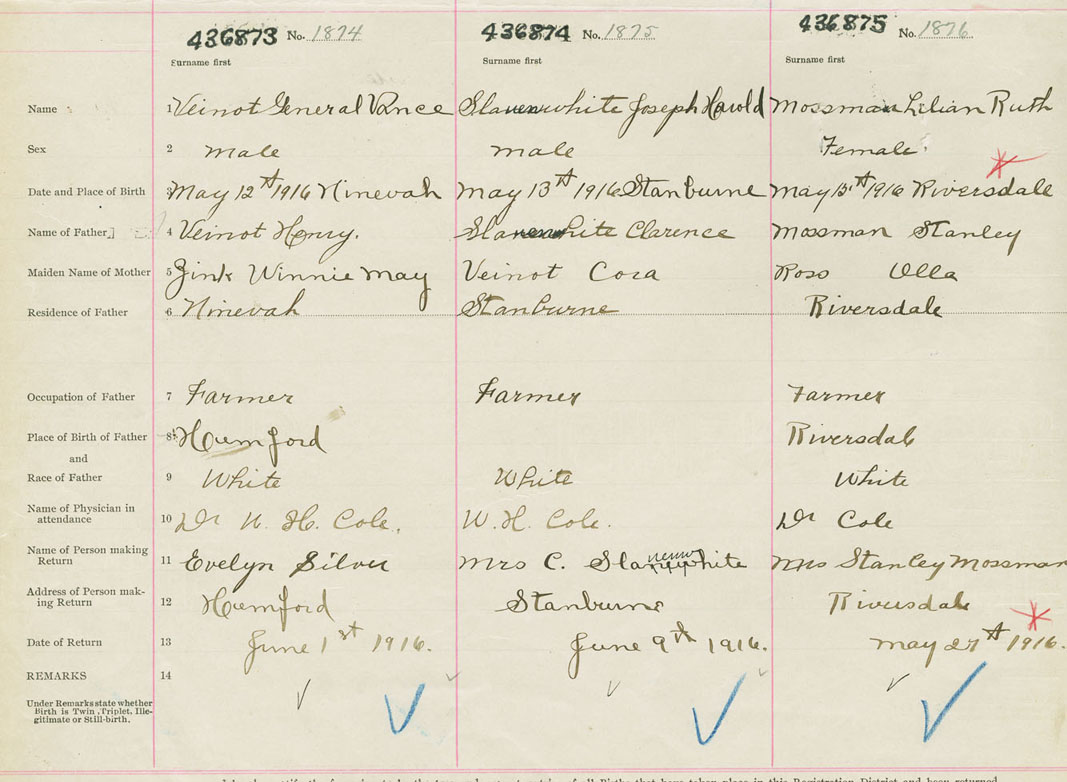 436873 No. 1874 436874 No. 1875 436875 No. 1876
Surname first Surname first Surname first
Name 1 Veinot General Vance Slavenwhite Joseph Harold Mossman Lilian Ruth
Sex 2 male male Female
Date and Place of Birth 3 May 12th 1916 Ninevah May 13th 1916 Stanburne May 13th 1916 Riversdale
Name of Father 4 Veinot Henry. Slavenwhite Clarence Mossman Stanley
Maiden Name of Mother 5 Zink Winnie May Veinot Cora Ross Ulla
Residence of Father 6 Ninevah Stanburne Riversdale
Occupation of Father 7 Farmer Farmer Farmer
Place of Birth of Father 8 Hemford Riversdale
and
Race of Father 9 White White White
Name of Physician in
attendance 10 Dr W. H. Cole. W. H. Cole. Dr Cole
Name of Person making
Return 11 Evelyn Silver Mrs C. Slavenwhite Mrs Stanley Mossman
Address of Person mak-
ing Return 12 Hemford Stanburne Riversdale
Date of Return 13 June 1st 1916. June 9th 1916. May 27th 1916.
REMARKS 14
Under Remarks state whether
Birth is Twin, Triplet, Ille-
gitimate or Still-birth.